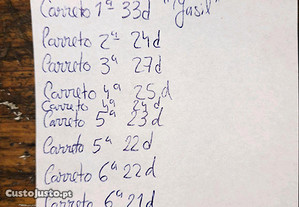 Carreto 1ª 33d "Yasil"
Carreto 2ª 24d
Carreto 3ª 27d
Carreto 4ª 25,d
Carreto 4ª 24d
Carreto 5ª 23d
Carreto 5ª 22d
Carreto 6ª 22d
Carreto 6ª 21d
CustoJusto.pt